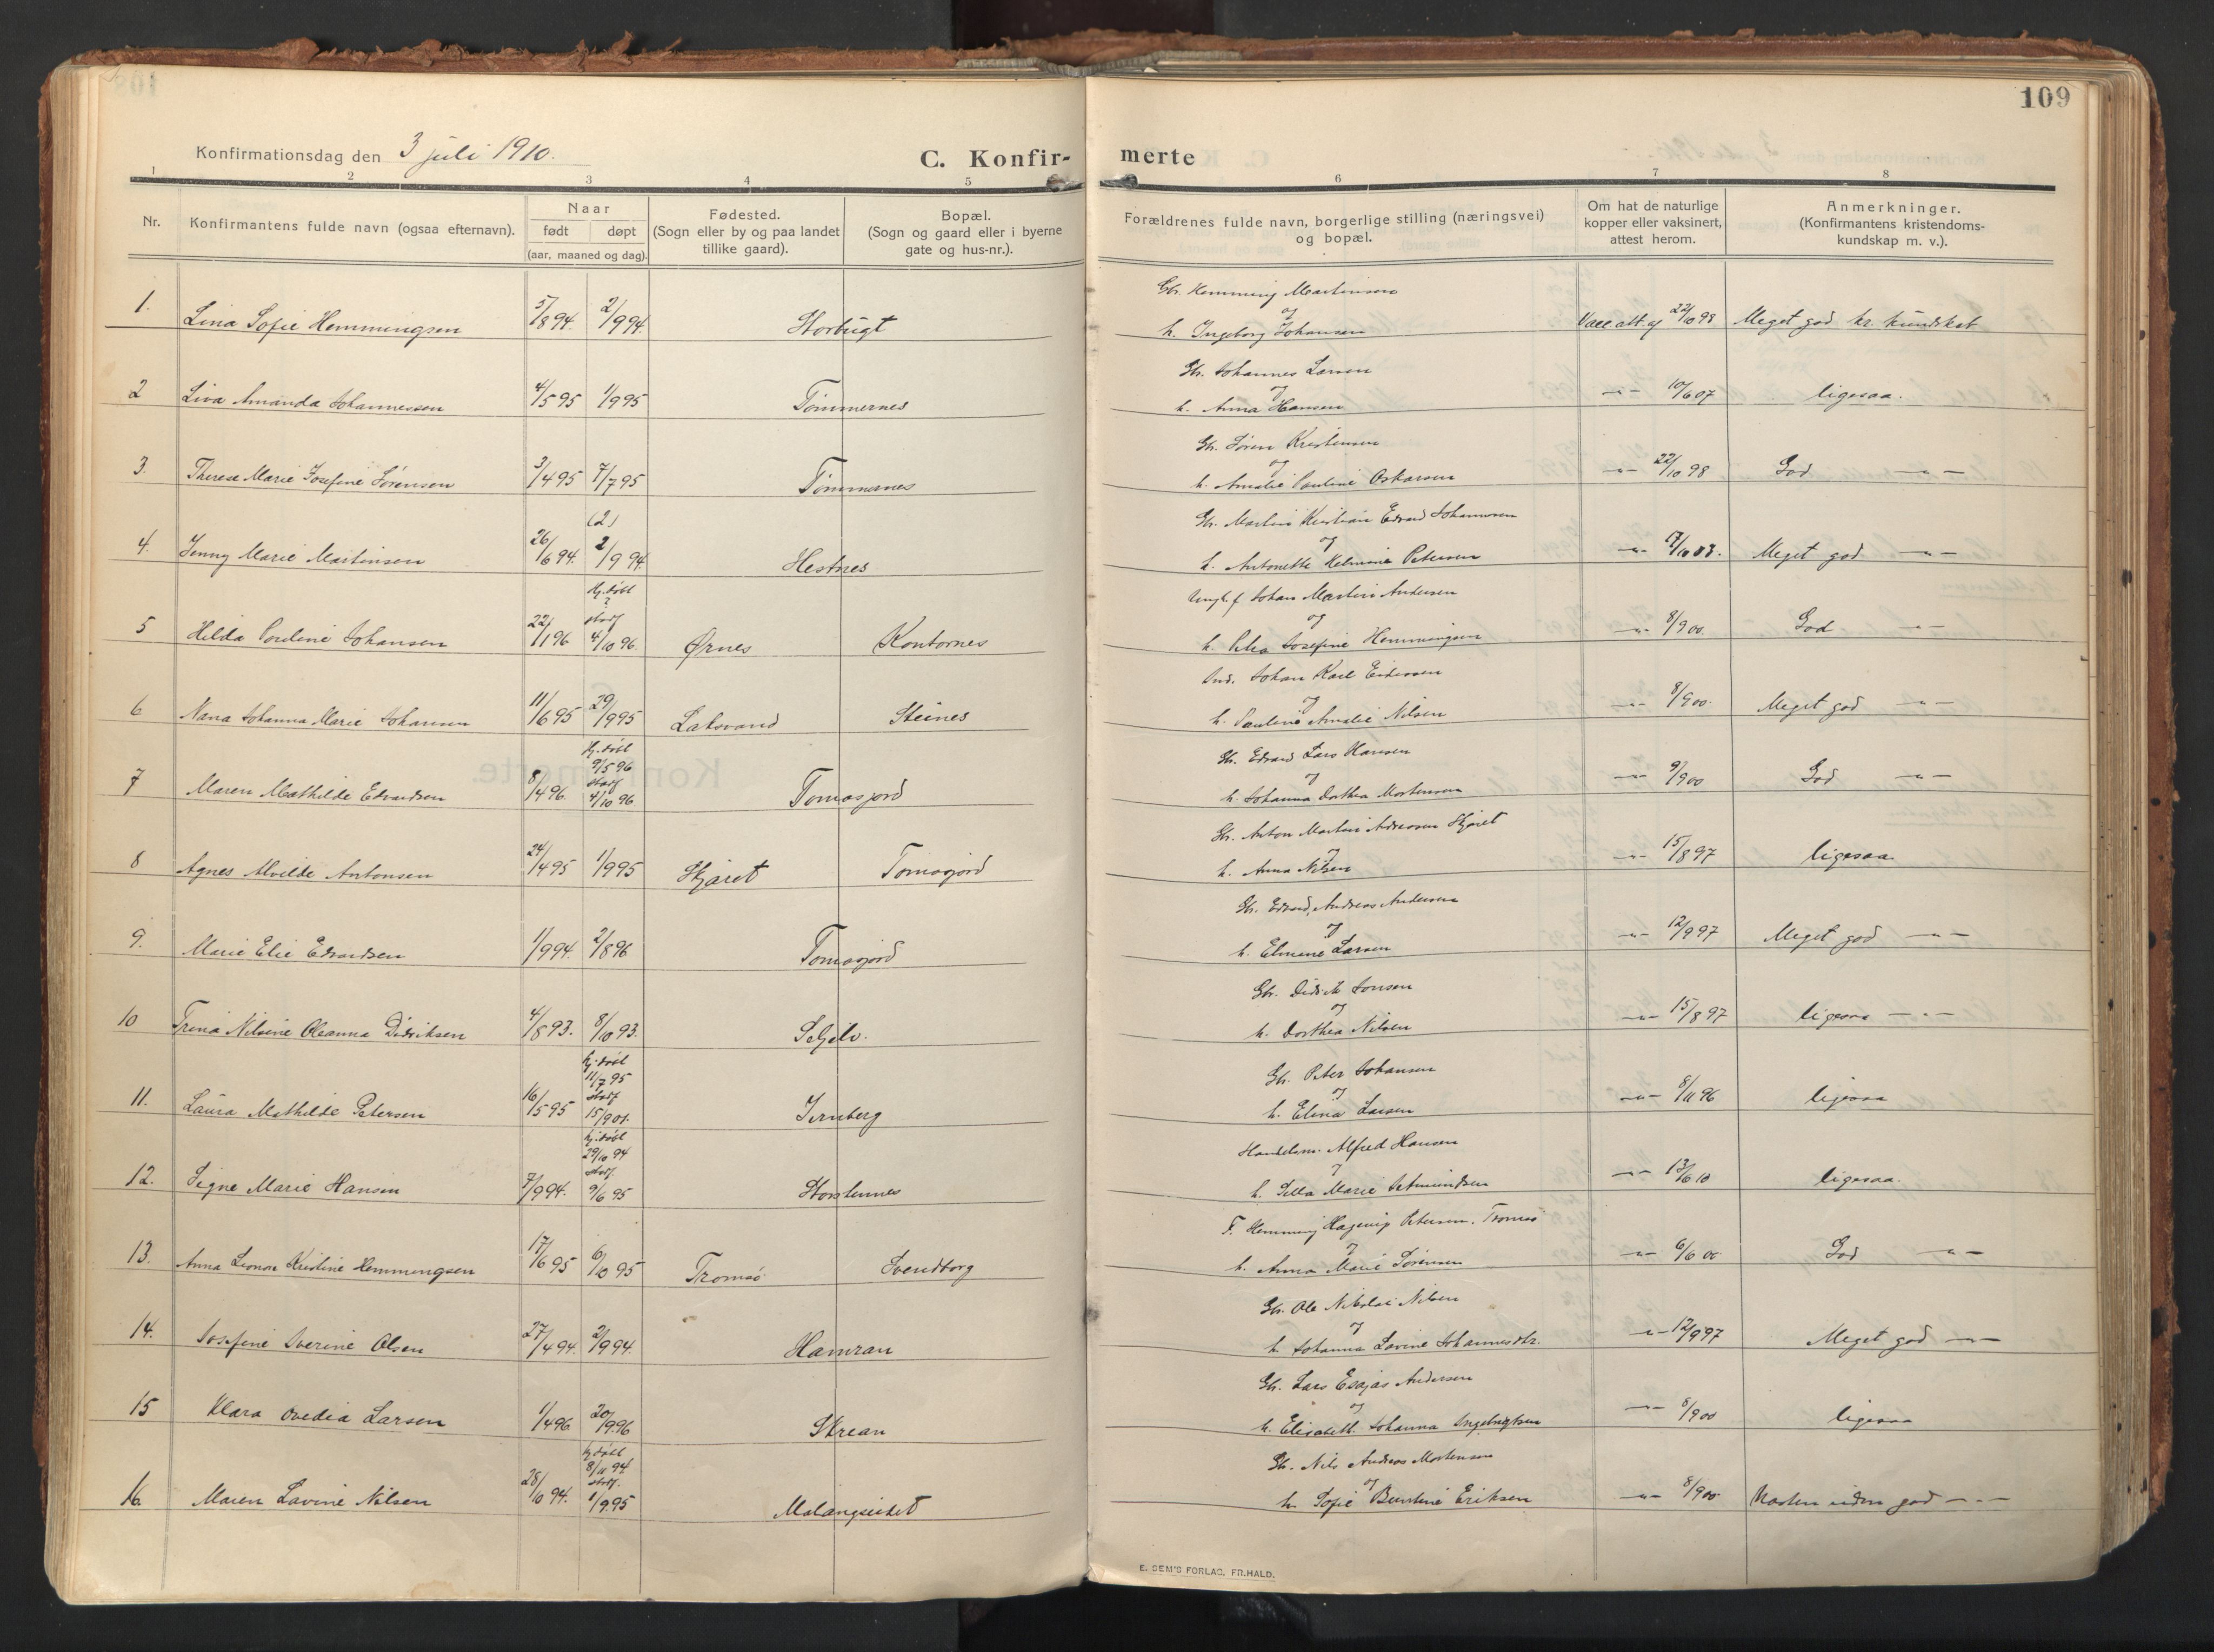 109
Konfirmationsdag den 3 juli 1910.
C. Konfir-
merte
1 2 3 4 5 6 7 8
Nr.
Konfirmantens fulde navn (ogsaa efternavn).
Naar
født døpt
(aar, maaned og dag).
Fødested.
(Sogn eller by og paa landet
tillike gaard).
Bopæl.
(Sogn og gaard eller i byerne
gate og hus-nr.).
Forældrenes fulde navn, borgerlige stilling (næringsvei)
og bopæl.
Om hat de naturlige
kopper eller vaksinert,
attest herom.
Anmerkninger.
(Konfirmantens kristendoms-
kundskap m. v.).
Gbr. Hemming Martinsen
og
1. Lina Sofie Hemmingsen 5/8 94. 2/9 94. Storbugt h. Ingeborg Johansen Vacc. att. af 22/10 98 Meget god kr. kundskab
Gbr. Johannes Larsen
og
2 Liva Amanda Johannessen 4/5 95 1/9 95 Tömmernes h. Anna Hansen -"- 10/6 07 ligesaa.
Gbr. Sören Kristensen
og
3. Therese Marie Josefine Sörensen 3/4 95 7/7 95 Tömmernes h. Amalie Pauline Oskarsen -"- 22/10 98 God -"-
(2)
Gbr. Martin Kristian Edvard Johannesen
og
4. Jenny Marie Martinsen 26/6 94. 2/9 94. Hestnes h. Antonette Helmine Petersen -"- Meget god -"-
Hj. döbt
?
stadf
Ungk. f. Johan Martin Andersen
og
5 Hilda Pauline Johansen 22/1 96 4/10 96. Ørnes Kontornes h. Josefine Hemmingsen -"- 8/9 00. God -"-
Ind. Johan Karl
og
6 Nana Johanna Marie Johansen 11/6 95 29/9 95 Laksvand Steines h. Pauline Amalie Nilsen -"- 8/9 00. Meget god -"-
Hj. döbt
9/5 96
stadf
Gbr. Edvard Lars Hansen
og
7 Maren Mathilde Edvardsen 8/4 96. 4/10 96 Tomasjord h. Johanna Dorthea Mortensen -"- 9/9 00 God -"-
Gbr. Anton Martin Andreasen Skjæret
og
8 Agnes Alvilde Antonsen 24/4 95 1/9 95 Skjæret Tomasjord h. Anna Nilsen -"- 15/8 97 ligesaa.
Gbr. Edvard Andreas Andersen
og
9. Marie Elie Edvardsen 1/9 94. 2/8 96 Tomasjord h. Elmine Larsen -"- 12/9 97 Meget god -"-
Gbr. Didrik Jonsen
og
10 Trina Nilsine Oleanna Didriksen 4/8 93. 8/10 93. Seljelv. h. Dorthea Nilsen -"- 15/8 97 ligesaa -"-
hj. döbt
11/7 95
stadf
Gbr. Peter Johansen
og
11. Laura Mathilde Petersen 16/5 95 15/9 01. Jernberg h. Elina Larsen -"- 8/11 96 ligesaa
hj. döbt
29/10 94
stadf.
Handelsm. Alfred Hansen
og
12. Signe Marie Hansen 7/9 94. 9/6 95 Storstennes h. Sella Marie -"- 13/6 10 ligesaa.
F. Hemming Hagerup Petersen. Tromsö
og
13. Anna Leonore Kristine Hemmingsen 17/6 95 6/10 95 Tromsö Svendborg h. Anna Marie Sörensen -"- 6/6 00 God -"-
Gbr. Ole Nikolai Nilsen
og
14. Josefine Severine Olsen 27/4 94. 2/9 94. Hamran h. Johanna Lavine Johannesdtr. -"- 12/9 97 Meget god -"-
Gbr. Lars Esajas Andersen
og
15 Klara Ovedia Larsen 1/4 96 20/9 96 Skrean h. Elisabeth Johanna Ingebrigtsen -"- 8/9 00 ligesaa
hj. döbt
8/11 94
stadf.
Gbr. Nils Andreas Mortensen
og
16. Maren Lavine Nilsen 28/10 94. 1/9 95 Malangseidet h. Sofie Berntine Eriksen -"- 8/9 00. Næsten uden god -"-
E. SEM'S FORLAG, FR.HALD.